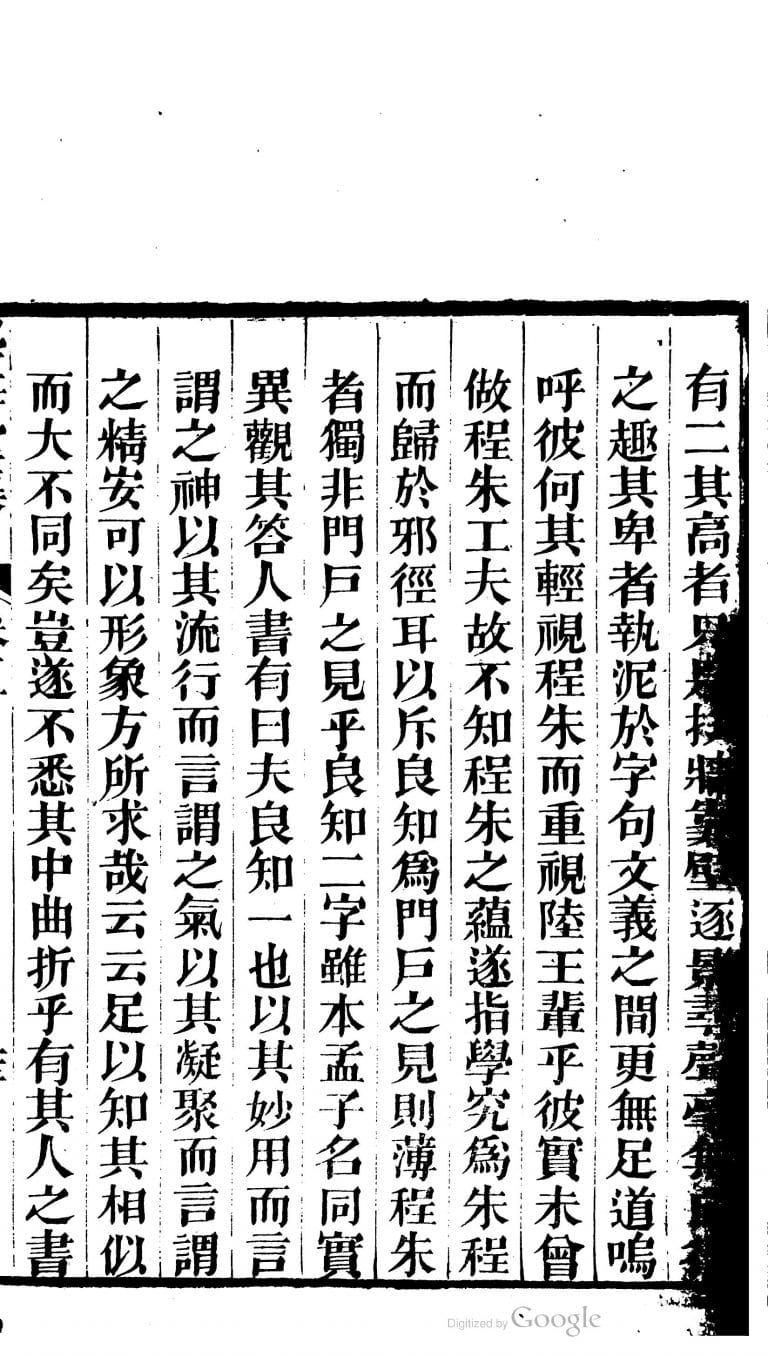 有二其高者只是扶牆壁逐影尋聲毫無
之趣其卑者執泥於字句文義之間更無足道嗚
呼彼何其輕視程朱而重視陸王輩乎彼實未曾
做程朱工夫故不知程朱之蘊遂指學究爲朱程
而歸於邪徑耳以斥良知爲門戶之見則薄程朱
者獨非門戶之見乎良知二字雖本孟子名同實
異觀其答人書有曰夫良知一也以其妙用而言
謂之神以其流行而言謂之氣以其凝聚而言謂
之精安可以形象方所求哉云云足以知其相似
而大不同矣豈遂不悉其中曲折乎有其人之書
Digitized by Google